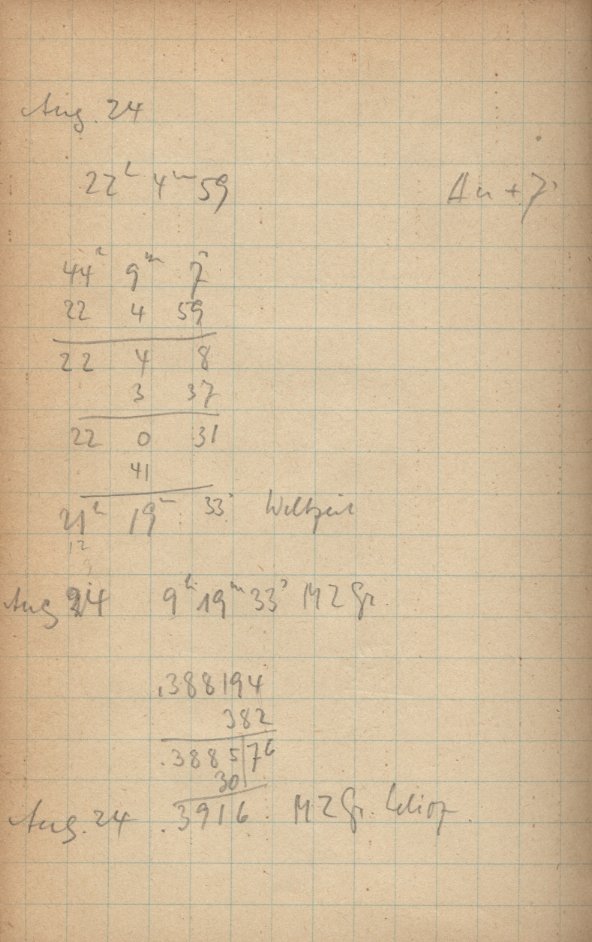 Aug. 24
22h 4m 59
Δu + 7s
44h 9m 7s
22 4 59
22 4 8
3 37
22 0 31
41
21h 19m 33s Weltzeit
12
Aug 24 9h 19m 33s M Z Gr.
.388194
382
.3885|76
30
Aug. 24 .3916 M Z Gr. helioz.